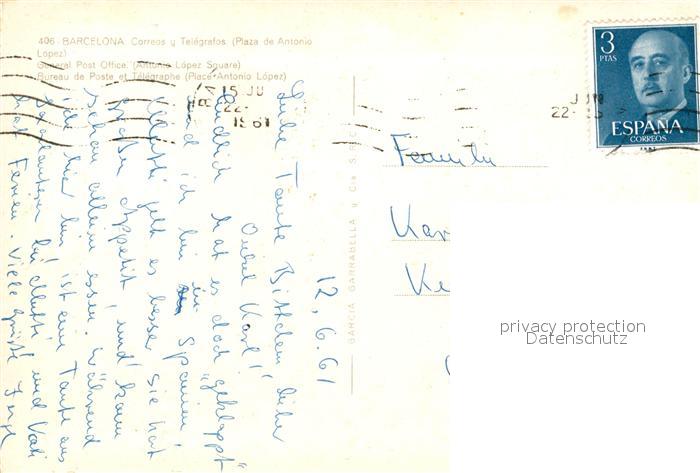 406 - BARCELONA. Correos y Telégrafos. (Plaza de Antonio
López)
General Post Office. (Antonio López Square)
Bureau de Poste et Télégraphe (Place Antonio López)
15 JU
22-
1961
JUN
22-
3
PTAS
ESPAÑA
CORREOS
GARCIA GARRABELLA y Cía
12.6.61
Liebe Tante Bettchen, lieber
Onkel Karl!
Endlich hat es doch "geklappt"
und ich bin in Spanien!
Mutti geht es besser, sie hat
großen Appetit und kann
schon allein essen. Während
ich hier bin ist eine Tante aus
bei Mutti und Vati
hat Ferien. Viele Grüße Inge
Familie
Kar
Ke
privacy protection
Datenschutz